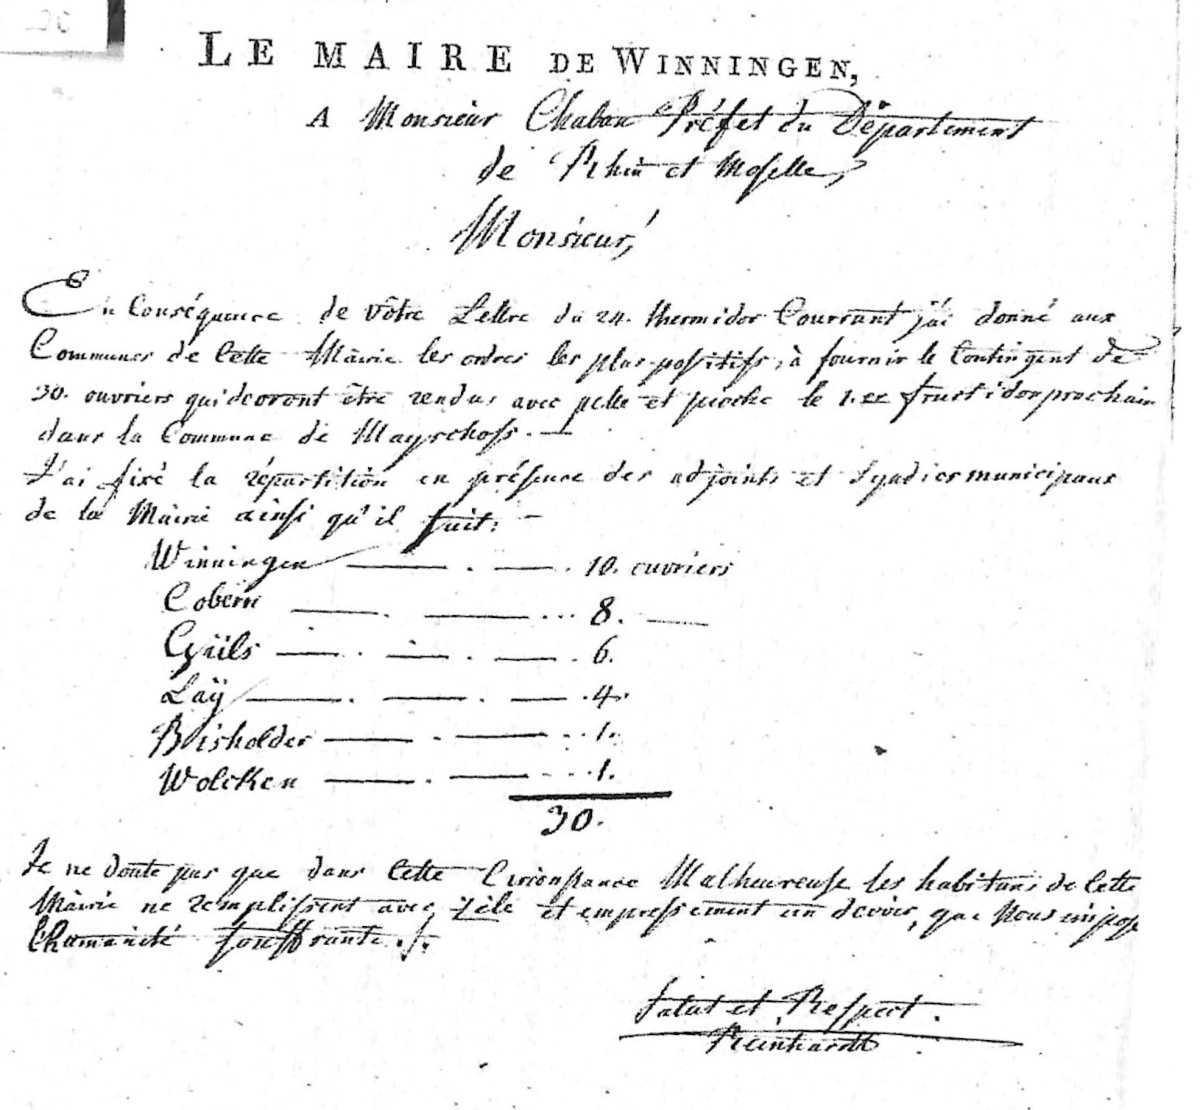 LE MAIRE DE WINNINGEN,
A Monsieur Chaban Préfet du Département
de Rhin et Moselle,
Monsieur,
En Conséquence de vôtre Lettre du 24. thermidor Courrant j'ai donné aux
Communes de Cette Mairie les ordres les plus positifs, à fournir le Contingent de
30. ouvriers qui devront être rendus avec pelle et pioche le 1.er fructidor prochain
dans la Commune de Mayschoss. —
J'ai fixé la répartition en présence des adjoints et Syndics municipaux
de la Mairie ainsi qu'il suit: —
Winningen — . — . 10. ouvriers
Cobern — . — ... 8. —
Güls — . — . — . 6.
Laÿ — . — . — . 4.
Bisholder — . — .. 1.
Wolcken — . — ... 1.
30.
Je ne doute pas que dans Cette Circonstance Malheureuse les habitans de Cette
Mairie ne remplissent avec zèle et empressement un devoir, que Nous impose
l'humanité souffrante ./.
Salut et Respect.
Reinhardt